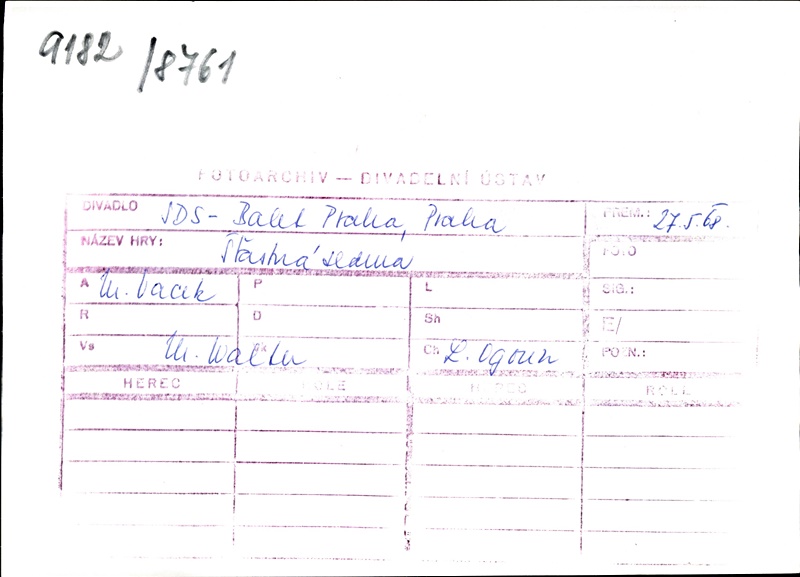 9182 /8761
FOTOARCHIV — DIVADELNÍ ÚSTAV
DIVADLO SDS - Balet Praha, Praha PREM.: 27.5.68.
NÁZEV HRY: Šťastná sedma FOTO
A M. Vacek P L SIG.:
R D Sh E/
Vs M. Walter Ch L. Ogoun POZN.:
HEREC ROLE HEREC ROLE